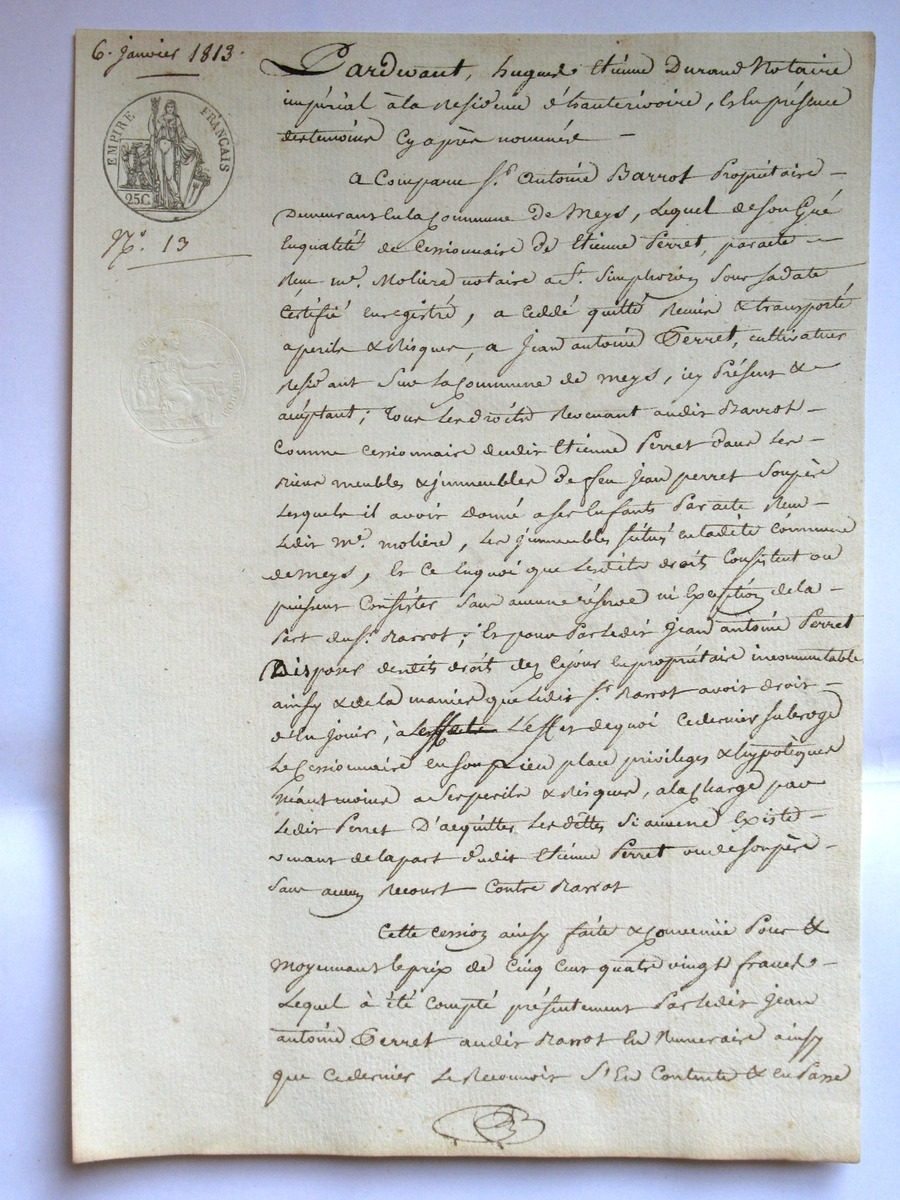 6. janvier 1813.
EMPIRE FRANÇAIS
25C.
N.º 13
Pardevant, hugues Etienne Durand Notaire
impérial à la Residence d'hauterivoire, & En présence
des temoins Cyaprès nommés —
a Comparu S.r Antoine Barrot Propriétaire —
Demeurant En la Commune de Meys, Lequel de son Gré
En qualité de Cessionnaire de Etienne Perret, par acte —
Reçu m.e Moliere notaire a S.t Simphorien Sous sa date
Certifié Enregistré, a Ceddé quitté Remis & transporté
a perils & Risques, a Jean antoine Perret, cultivateur
Residant Sur la Commune de meys, icy Présent &
acceptant; Tous Les droits Revenant audit Barrot —
Comme Cessionnaire dudit Etienne Perret dans Les —
Biens meubles & jmmeubles De feu Jean perret Son père
Lesquels il avoit Donné a ses Enfants Par acte Reçu —
Ledit M.e moliére, Les jmmeubles situés En la dite Commune
de Meys, Et Ce En quoi que Lesdits droits Consistent ou
puissent Consister Sans aucune réserve ni Exception de la
Part du S.r Barrot; Et pour Par Ledit Jean antoine Perret
Disposer desdits droit dez Cejour En propriétaire incommutable
ainsy & de la maniere que Ledit S.r Barrot avoit droit —
d'En jouir; à L'effet de quoi Ce dernier Subroge
Le Cessionnaire en Son Lieu place privileges & hypotèques
Néantmoins a Ses perils & Risques, a la Charge par
Ledit Perret D'acquitter Les dettes Si aucunes Existe —
venant de la part dudit Etienne Perret ou de Son père —
Sans aucun Recourt Contre Barrot
Cette Cession ainsy faite & Convenüe Pour &
Moyennant le prix de Cinq Cent quatre vingt francs —
Lequel à été Compté présentement Par Ledit Jean
antoine Perret audit Barrot En Numeraire ainsy
que Ce dernier Le Reconnoit S'En Contente & en Passe